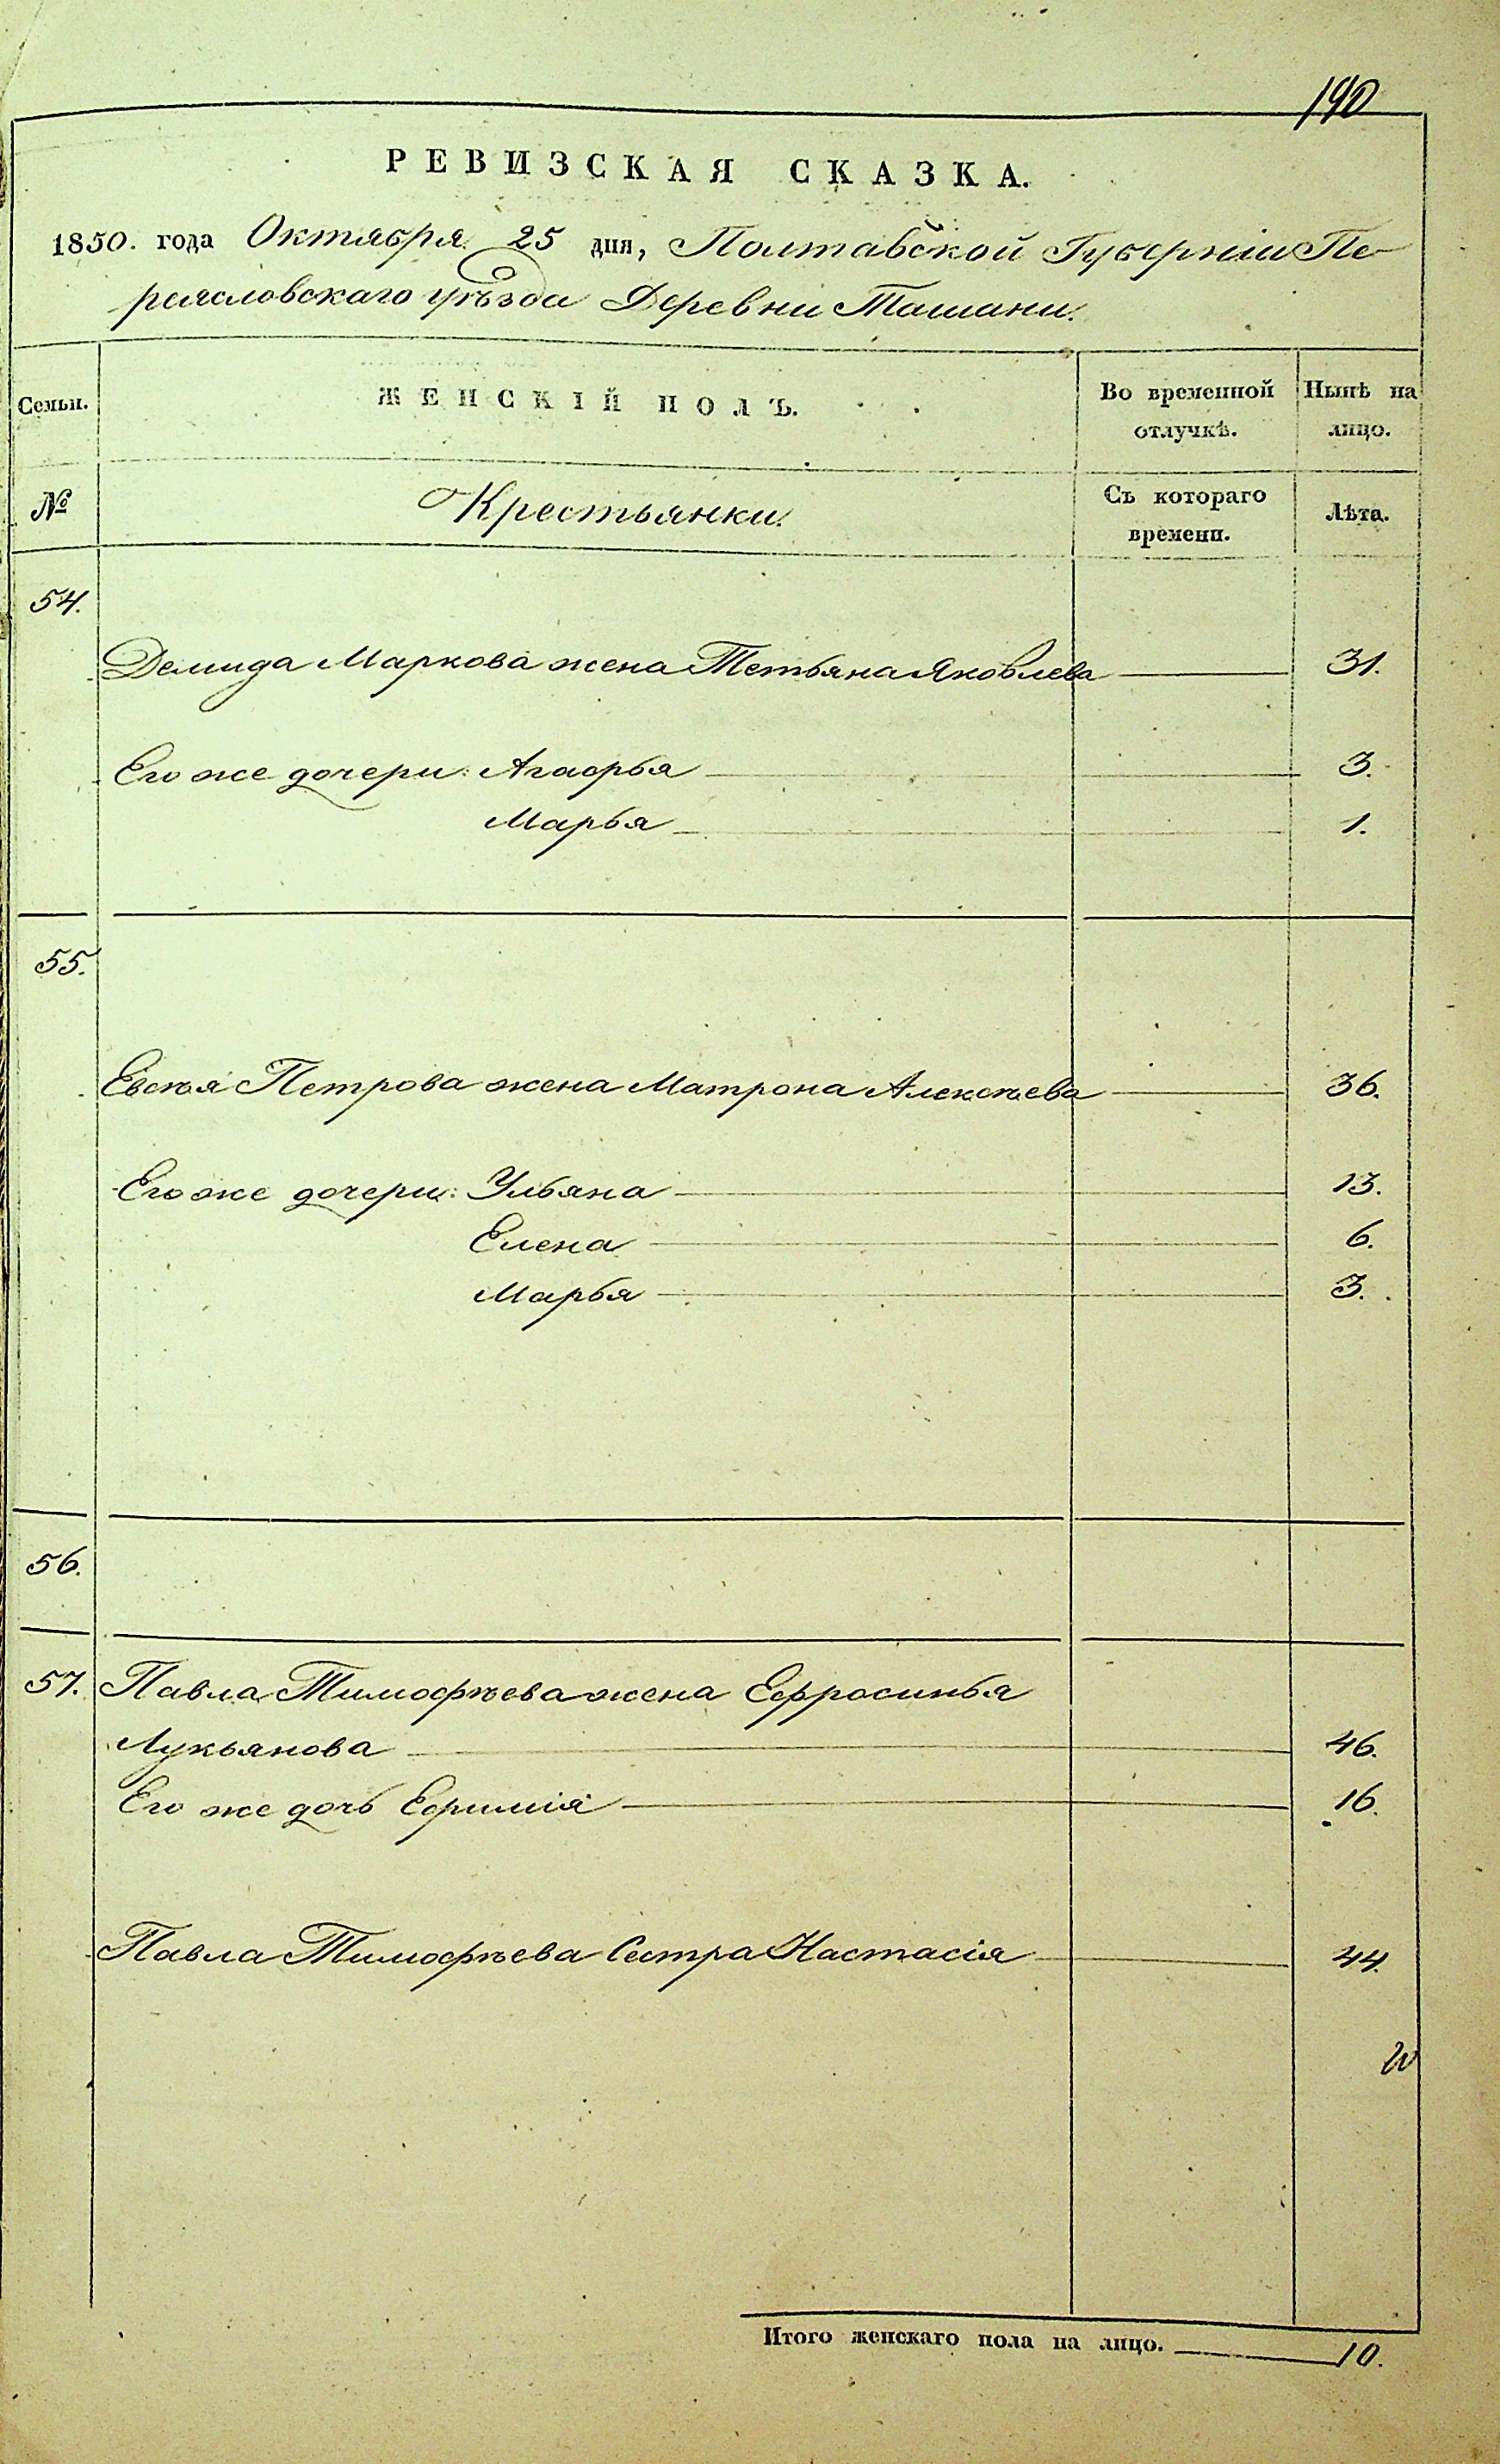 190
РЕВИЗСКАЯ СКАЗКА.
1850. года Октября 25 дня, Полтавской Губерніи Пе-
реясловскаго уѣзда Деревни Ташани.
Семьи.
ЖЕНСКІЙ ПОЛЪ.
Во временной отлучкѣ.
Нынѣ на лицо.
№
Крестьянки.
Съ котораго времени.
Лѣта.
54.
Демида Маркова жена Тетьяна Яковлева 31.
Его же дочери: Агафья 3.
Марья 1.
55.
Евсѣя Петрова жена Матрона Алексѣева 36.
Его же дочери: Ульяна 13.
Елена 6.
Марья 3.
56.
57. Павла Тимофѣева жена Ефросинья
Лукьянова 46.
Его же дочь Ефимія 16.
Павла Тимофѣева Сестра Настасія 44.
Итого женскаго пола на лицо. 10.